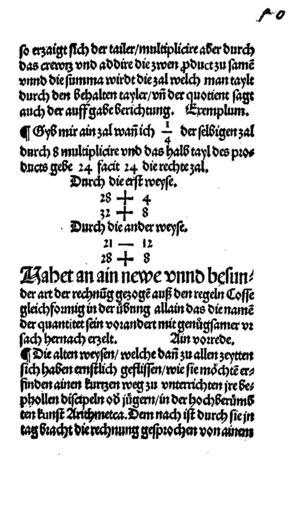 so erzaigt sich der tailer/multiplicire aber durch
das creutz vnd addire die zwen ꝓduct zu samē
vnnd die summa wirdt die zal welch man taylt
durch den behalten tayler/vñ der quotient sagt
auch der auffgabe berichtung. Exemplum.
¶ Gyb mir ain zal wañ ich 1/4 der selbigen zal
durch 8 multiplicire vnd das halb tayl des pro-
ducts gebe 24 facit 24 die rechte zal.
Durch die erst weyse.
28 + 4
32 + 8
Durch die ander weyse.
21 — 12
28 + 8
Hahet an ain newe vnnd besun-
der art der rechnūg gezogē auß den regeln Cosse
gleichformig in der übung allain das die namē
der quantitet sein vorandert mit genůgsamer vr
sach hernach erzelt. Ain vorrede.
¶ Die alten weysen/welche dañ zu allen zeytten
sich haben ernstlich geflissen/wie sie möchtē er-
finden ainen kurtzen weg zu vnterrichten jre be-
phollen discipeln oď jügern/in der hochberümb
ten kunst Arithmetca. Dem nach ist durch sie jn
tag bracht die rechnung gesprochen von ainem